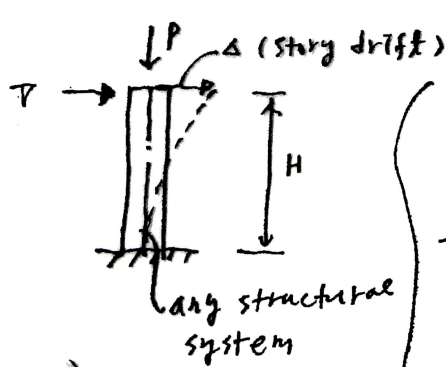 P
Δ (story drift)
V
H
any structural
system